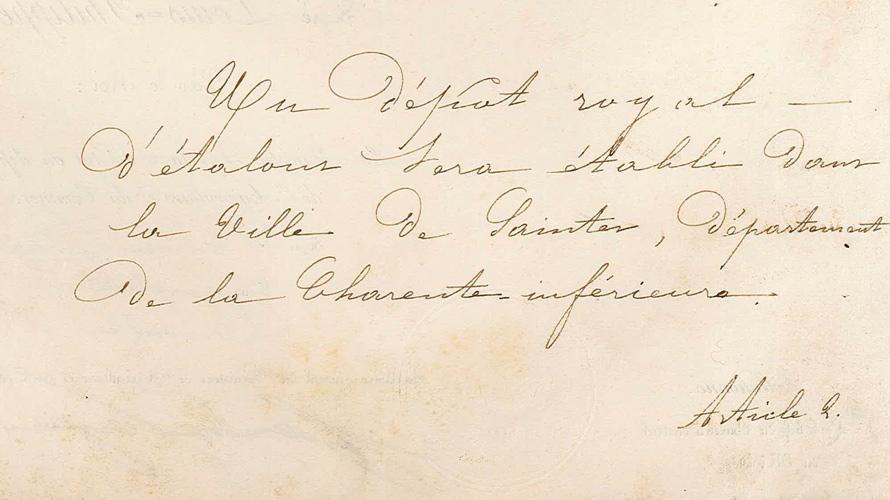 Un dépôt royal —
d'étalons sera établi dans
la Ville de Saintes, département
de la Charente-inférieure.
Article 2.